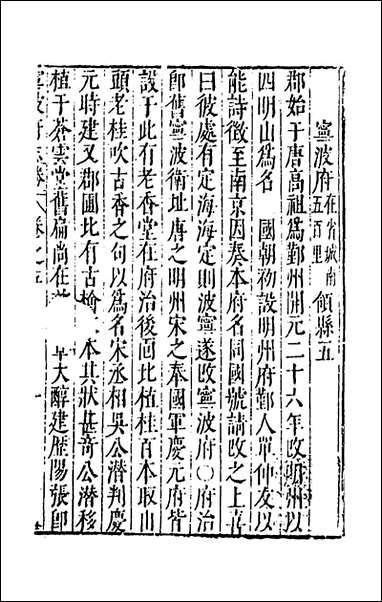 寧波府在省城南五百里領縣五
郡始于唐高祖爲鄞州開元二十六年改明州以
四明山爲名 國朝初設明州府鄞人單仲友以
能詩徵至南京因奏本府名同國號請改之上喜
曰彼處有定海海定則波寧遂改寧波府〇府治
卽舊寧波衛址唐之明州宋之奉國軍慶元府皆
設于此有老香堂在府治後囬北植桂百本取山
頭老桂吹古香之句以爲名宋丞相吳公潛判慶
元時建又郡圃北有古檜二本其狀甚奇公潛移
植于蒼雲堂舊扁尚在 大醇建歷陽張卽
卷之五